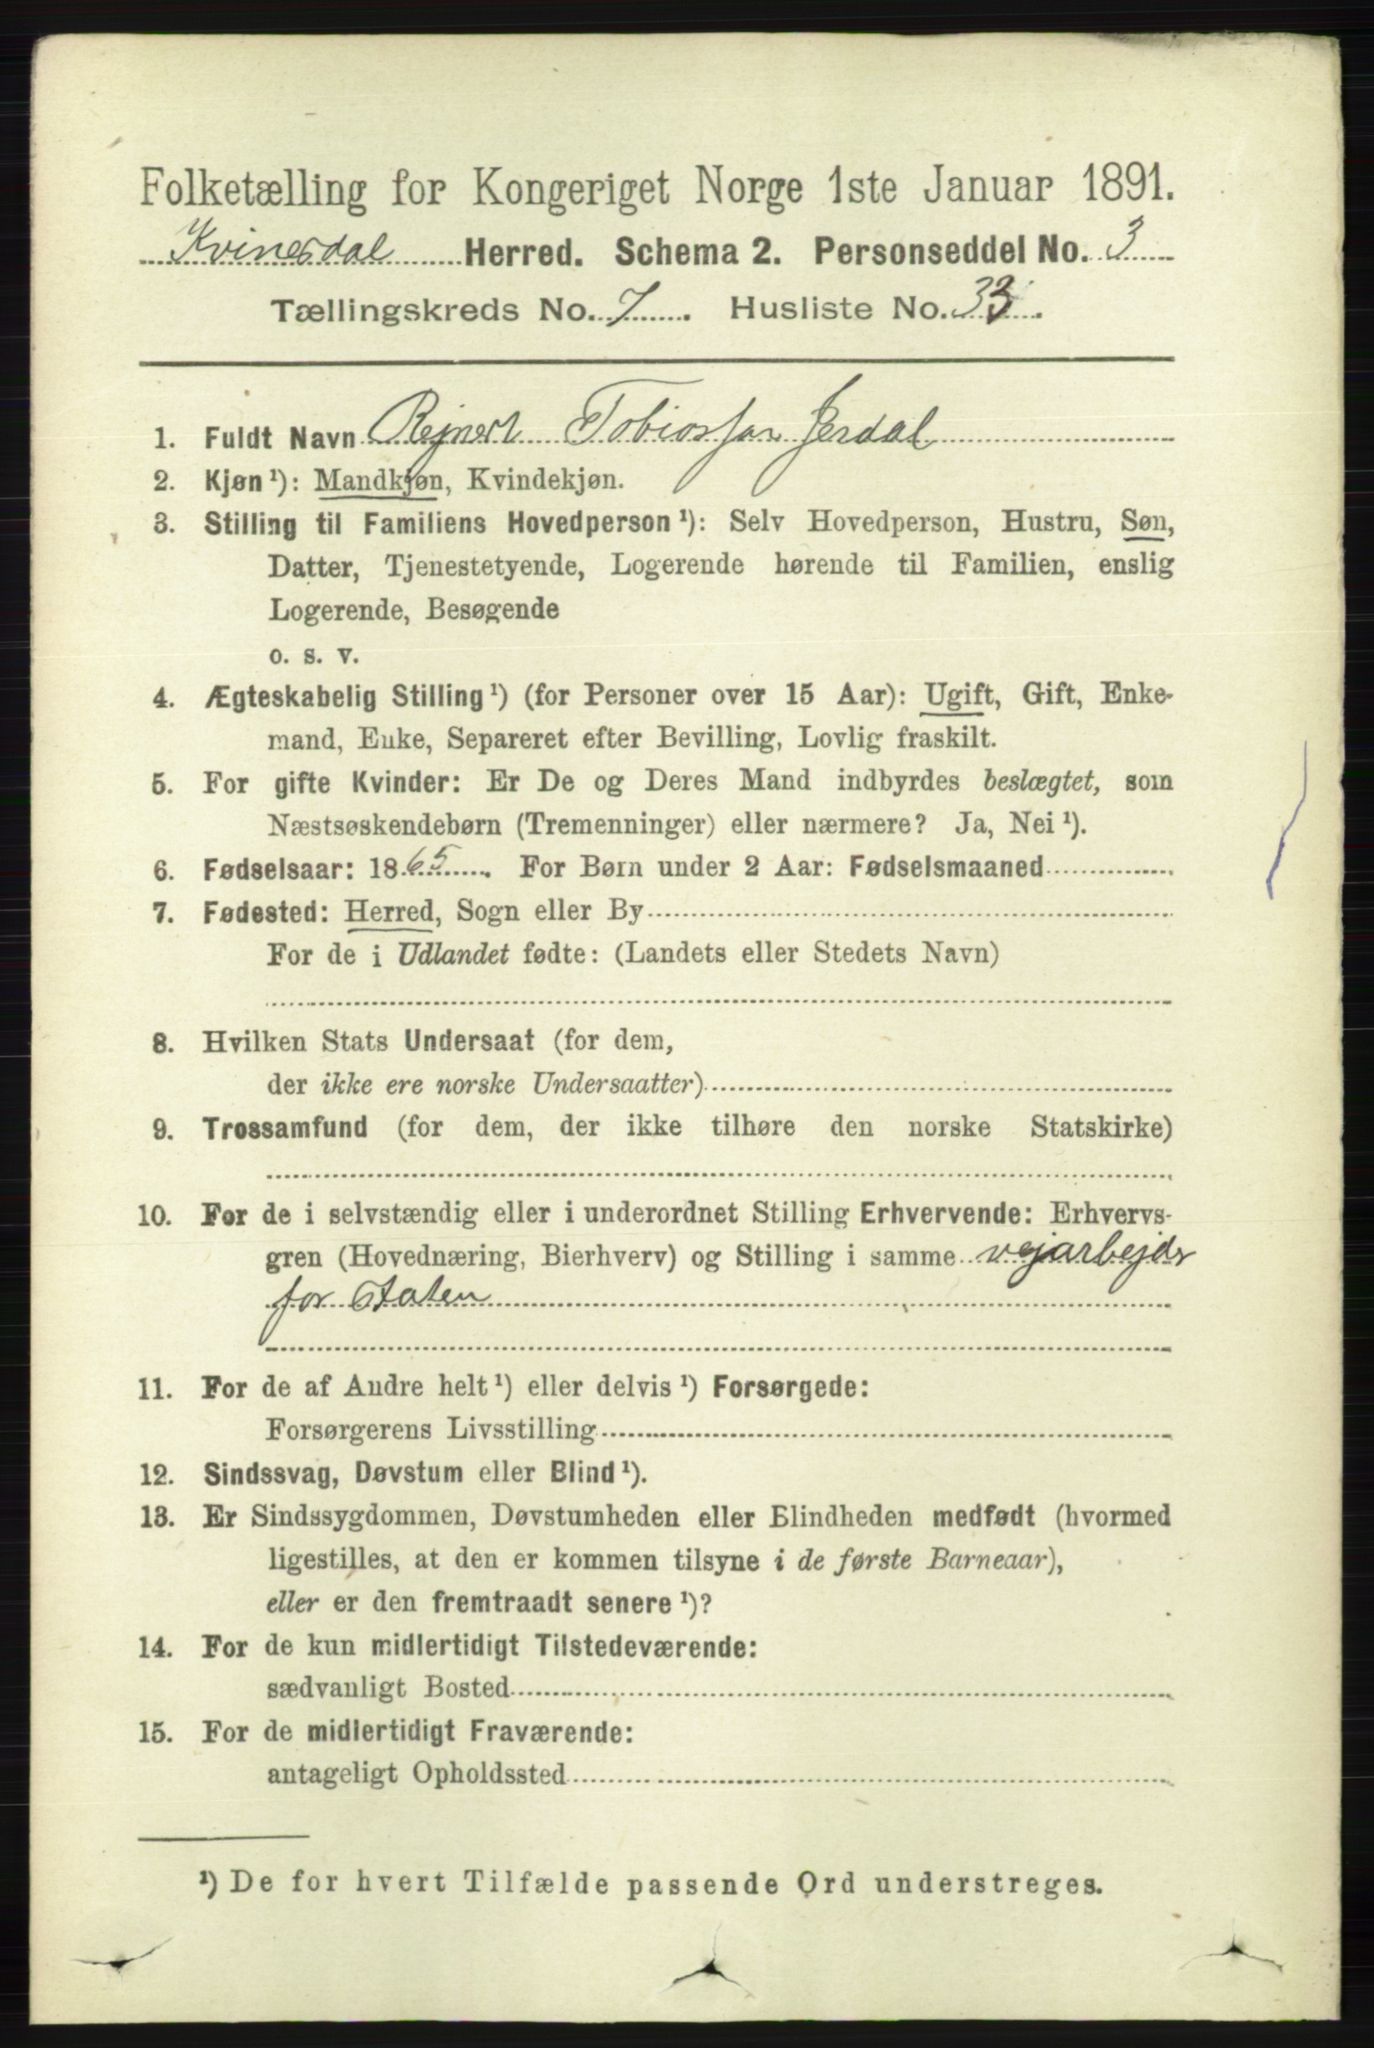 Folketælling for Kongeriget Norge 1ste Januar 1891.
Kvinesdal Herred. Schema 2. Personseddel No. 3
Tællingskreds No. 7. Husliste No. 33.
1. Fuldt Navn Rejnert Tobiassen Jerdal
2. Kjøn¹): Mandkjøn, Kvindekjøn.
3. Stilling til Familiens Hovedperson¹): Selv Hovedperson, Hustru, Søn,
Datter, Tjenestetyende, Logerende hørende til Familien, enslig
Logerende, Besøgende
o. s. v.
4. Ægteskabelig Stilling¹) (for Personer over 15 Aar): Ugift, Gift, Enke-
mand, Enke, Separeret efter Bevilling, Lovlig fraskilt.
5. For gifte Kvinder: Er De og Deres Mand indbyrdes beslægtet, som
Næstsøskendebørn (Tremenninger) eller nærmere? Ja, Nei¹).
6. Fødselsaar: 1865. For Børn under 2 Aar: Fødselsmaaned
7. Fødested: Herred, Sogn eller By
For de i Udlandet fødte: (Landets eller Stedets Navn)
8. Hvilken Stats Undersaat (for dem,
der ikke ere norske Undersaatter)
9. Trossamfund (for dem, der ikke tilhøre den norske Statskirke)
10. For de i selvstændig eller i underordnet Stilling Erhvervende: Erhvervs-
gren (Hovednæring, Bierhverv) og Stilling i samme vejarbejdr
for Staten
11. For de af Andre helt¹) eller delvis¹) Forsørgede:
Forsørgerens Livsstilling
12. Sindssvag, Døvstum eller Blind¹).
13. Er Sindssygdommen, Døvstumheden eller Blindheden medfødt (hvormed
ligestilles, at den er kommen tilsyne i de første Barneaar),
eller er den fremtraadt senere¹)?
14. For de kun midlertidigt Tilstedeværende:
sædvanligt Bosted
15. For de midlertidigt Fraværende:
antageligt Opholdssted
¹) De for hvert Tilfælde passende Ord understreges.